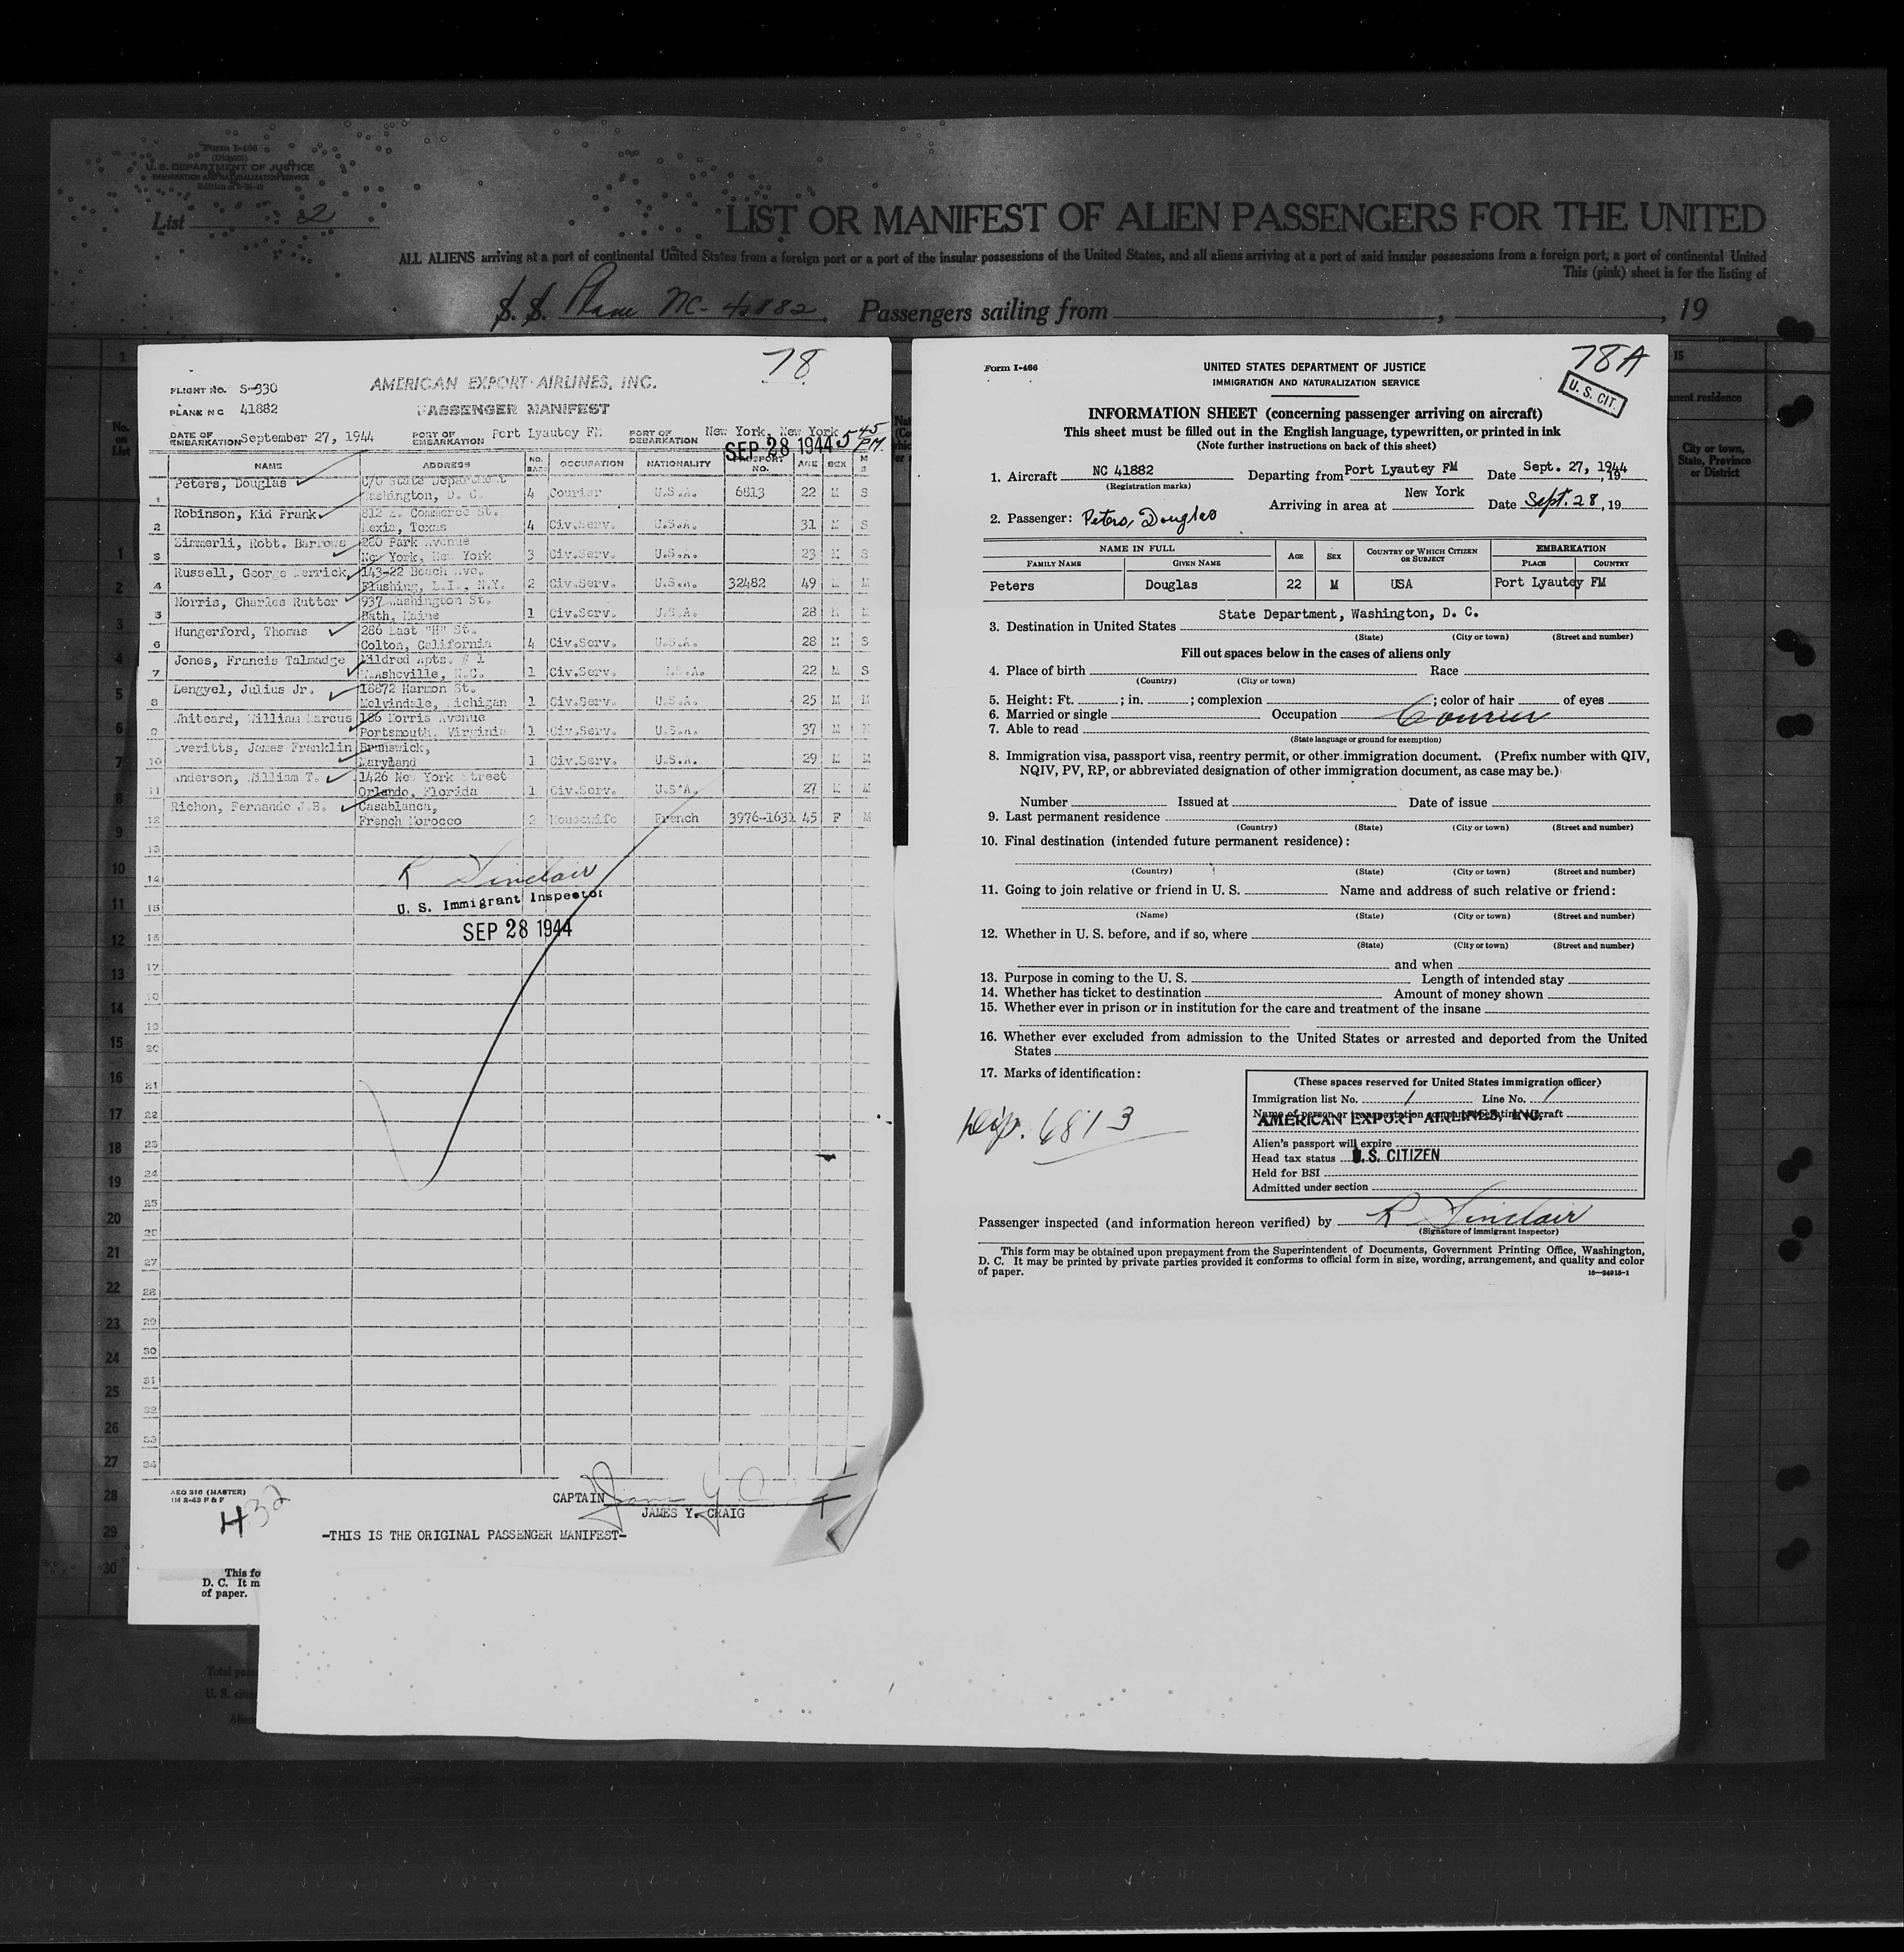 Form I-466
U. S. DEPARTMENT OF JUSTICE
IMMIGRATION AND NATURALIZATION SERVICE
List 2
LIST OR MANIFEST OF ALIEN PASSENGERS FOR THE UNITED
ALL ALIENS arriving at a port of continental United States from a foreign port or a port of the insular possessions of the United States, and all aliens arriving at a port of said insular possessions from a foreign port, a port of continental United
This (pink) sheet is for the listing of
S. S. Plane NC-41882. Passengers sailing from , , 19
78
FLIGHT NO. S-930
AMERICAN EXPORT AIRLINES, INC.
PLANE NC 41882
PASSENGER MANIFEST
DATE OF EMBARKATION September 27, 1944 PORT OF EMBARKATION Port Lyautey FM PORT OF DEBARKATION New York, New York
SEP 28 1944 5 45 PM.
NAME ADDRESS NO. BAGS OCCUPATION NATIONALITY PASSPORT NO. AGE SEX M S
1 Peters, Douglas C/O State Department
Washington, D. C. 4 Courier U.S.A. 6813 22 M S
2 Robinson, Kid Frank 812 E. Commerce St.
Mexia, Texas 4 Civ.Serv. U.S.A. 31 M S
3 Zimmerli, Robt. Barrows 280 Park Avenue
New York, New York 3 Civ.Serv. U.S.A. 23 M S
4 Russell, George Derrick 143-22 Beach Ave.
Flushing, L.I., N.Y. 2 Civ.Serv. U.S.A. 32482 49 M M
5 Norris, Charles Rutter 937 Washington St.
Bath, Maine 1 Civ.Serv. U.S.A. 28 M M
6 Hungerford, Thomas 286 East "H" St.
Colton, California 4 Civ.Serv. U.S.A. 28 M S
7 Jones, Francis Talmadge Mildred Apts. # 1
W.Asheville, N.C. 1 Civ.Serv. U.S.A. 22 M S
8 Lengyel, Julius Jr. 18872 Harmon St.
Melvindale, Michigan 1 Civ.Serv. U.S.A. 25 M M
9 Whiteard, William Marcus 186 Morris Avenue
Portsmouth, Virginia 1 Civ.Serv. U.S.A. 37 M M
10 Everitts, James Franklin Brunswick,
Maryland 1 Civ.Serv. U.S.A. 29 M M
11 Anderson, William T. 1426 New York Street
Orlando, Florida 1 Civ.Serv. U.S.A. 27 M M
12 Richon, Fernande J.B. Casablanca,
French Morocco 2 Housewife French 3976-1631 45 F M
13
14
15
16
17
18
19
20
21
22
23
24
25
26
27
28
29
30
31
32
33
34
R Sinclair
U. S. Immigrant Inspector
SEP 28 1944
AEO 316 (MASTER)
1M 2-43 F & F
432
CAPTAIN
JAMES Y. CRAIG
-THIS IS THE ORIGINAL PASSENGER MANIFEST-
This fo
D. C. It m
of paper.
78A
U. S. CIT.
Form I-466
UNITED STATES DEPARTMENT OF JUSTICE
IMMIGRATION AND NATURALIZATION SERVICE
INFORMATION SHEET (concerning passenger arriving on aircraft)
This sheet must be filled out in the English language, typewritten, or printed in ink
(Note further instructions on back of this sheet)
1. Aircraft NC 41882 Departing from Port Lyautey FM Date Sept. 27, 1944, 19
(Registration marks)
Arriving in area at New York Date Sept. 28, 19
2. Passenger: Peters, Douglas
NAME IN FULL AGE SEX COUNTRY OF WHICH CITIZEN OR SUBJECT EMBARKATION
FAMILY NAME GIVEN NAME PLACE COUNTRY
Peters Douglas 22 M USA Port Lyautey FM
3. Destination in United States State Department, Washington, D. C.
(State) (City or town) (Street and number)
Fill out spaces below in the cases of aliens only
4. Place of birth Race
(Country) (City or town)
5. Height: Ft. ; in. ; complexion ; color of hair of eyes
6. Married or single Occupation Courier
7. Able to read
(State language or ground for exemption)
8. Immigration visa, passport visa, reentry permit, or other immigration document. (Prefix number with QIV,
NQIV, PV, RP, or abbreviated designation of other immigration document, as case may be.)
Number Issued at Date of issue
9. Last permanent residence
(Country) (State) (City or town) (Street and number)
10. Final destination (intended future permanent residence):
(Country) (State) (City or town) (Street and number)
11. Going to join relative or friend in U. S. Name and address of such relative or friend:
(Name) (State) (City or town) (Street and number)
12. Whether in U. S. before, and if so, where
(State) (City or town) (Street and number)
and when
13. Purpose in coming to the U. S. Length of intended stay
14. Whether has ticket to destination Amount of money shown
15. Whether ever in prison or in institution for the care and treatment of the insane
16. Whether ever excluded from admission to the United States or arrested and deported from the United
States
17. Marks of identification:
Dip. 6813
(These spaces reserved for United States immigration officer)
Immigration list No. 1 Line No. 1
Name of person or transportation company operating aircraft
AMERICAN EXPORT AIRLINES, INC.
Alien's passport will expire
Head tax status U.S. CITIZEN
Held for BSI
Admitted under section
Passenger inspected (and information hereon verified) by R Sinclair
(Signature of immigrant inspector)
This form may be obtained upon prepayment from the Superintendent of Documents, Government Printing Office, Washington,
D. C. It may be printed by private parties provided it conforms to official form in size, wording, arrangement, and quality and color
of paper.
16—24915-1